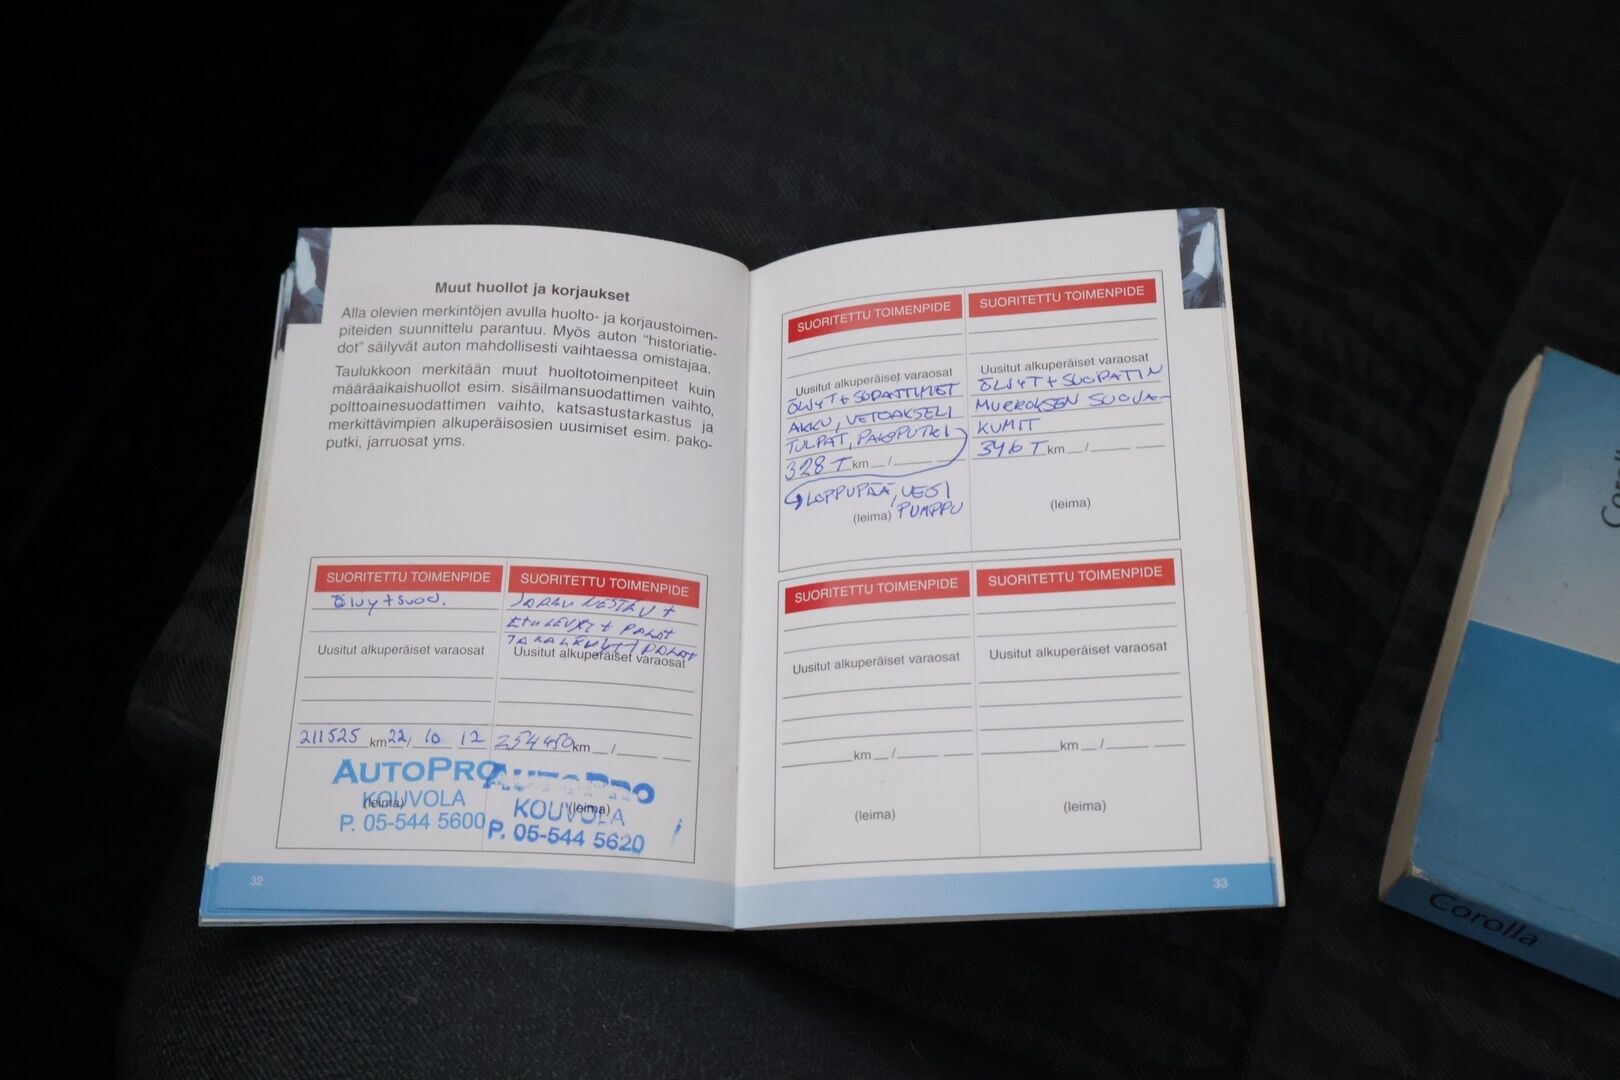 Muut huollot ja korjaukset
Alla olevien merkintöjen avulla huolto- ja korjaustoimen-
piteiden suunnittelu parantuu. Myös auton "historiatie-
dot" säilyvät auton mahdollisesti vaihtaessa omistajaa.
Taulukkoon merkitään muut huoltotoimenpiteet kuin
määräaikaishuollot esim. sisäilmansuodattimen vaihto,
polttoainesuodattimen vaihto, katsastustarkastus ja
merkittävimpien alkuperäisosien uusimiset esim. pako-
putki, jarruosat yms.
SUORITETTU TOIMENPIDE
öljy+suod.
Uusitut alkuperäiset varaosat
211525 km 22/ 10 12
(leima)
AUTOPRO
KOUVOLA
P. 05-544 5600
SUORITETTU TOIMENPIDE
JARRUNESTE/V +
ETULEVYT + PALAT
TAKALEVYT/PALAT
Uusitut alkuperäiset varaosat
254450 km /
(leima)
AUTOPRO
KOUVOLA
P. 05-544 5620
32
SUORITETTU TOIMENPIDE
Uusitut alkuperäiset varaosat
ÖLJYT+SUDATTIMET
AKKU, VETOAKSELI
TULPAT, PAKOPUTKI
328 T km /
LOPPUPÄÄ, VESI
PUMPPU
(leima)
SUORITETTU TOIMENPIDE
Uusitut alkuperäiset varaosat
ÖLJYT+SUOPATIN
MURROKSEN SUOJA-
KUMIT
346 T km /
(leima)
SUORITETTU TOIMENPIDE
Uusitut alkuperäiset varaosat
km /
(leima)
SUORITETTU TOIMENPIDE
Uusitut alkuperäiset varaosat
km /
(leima)
33
Corolla